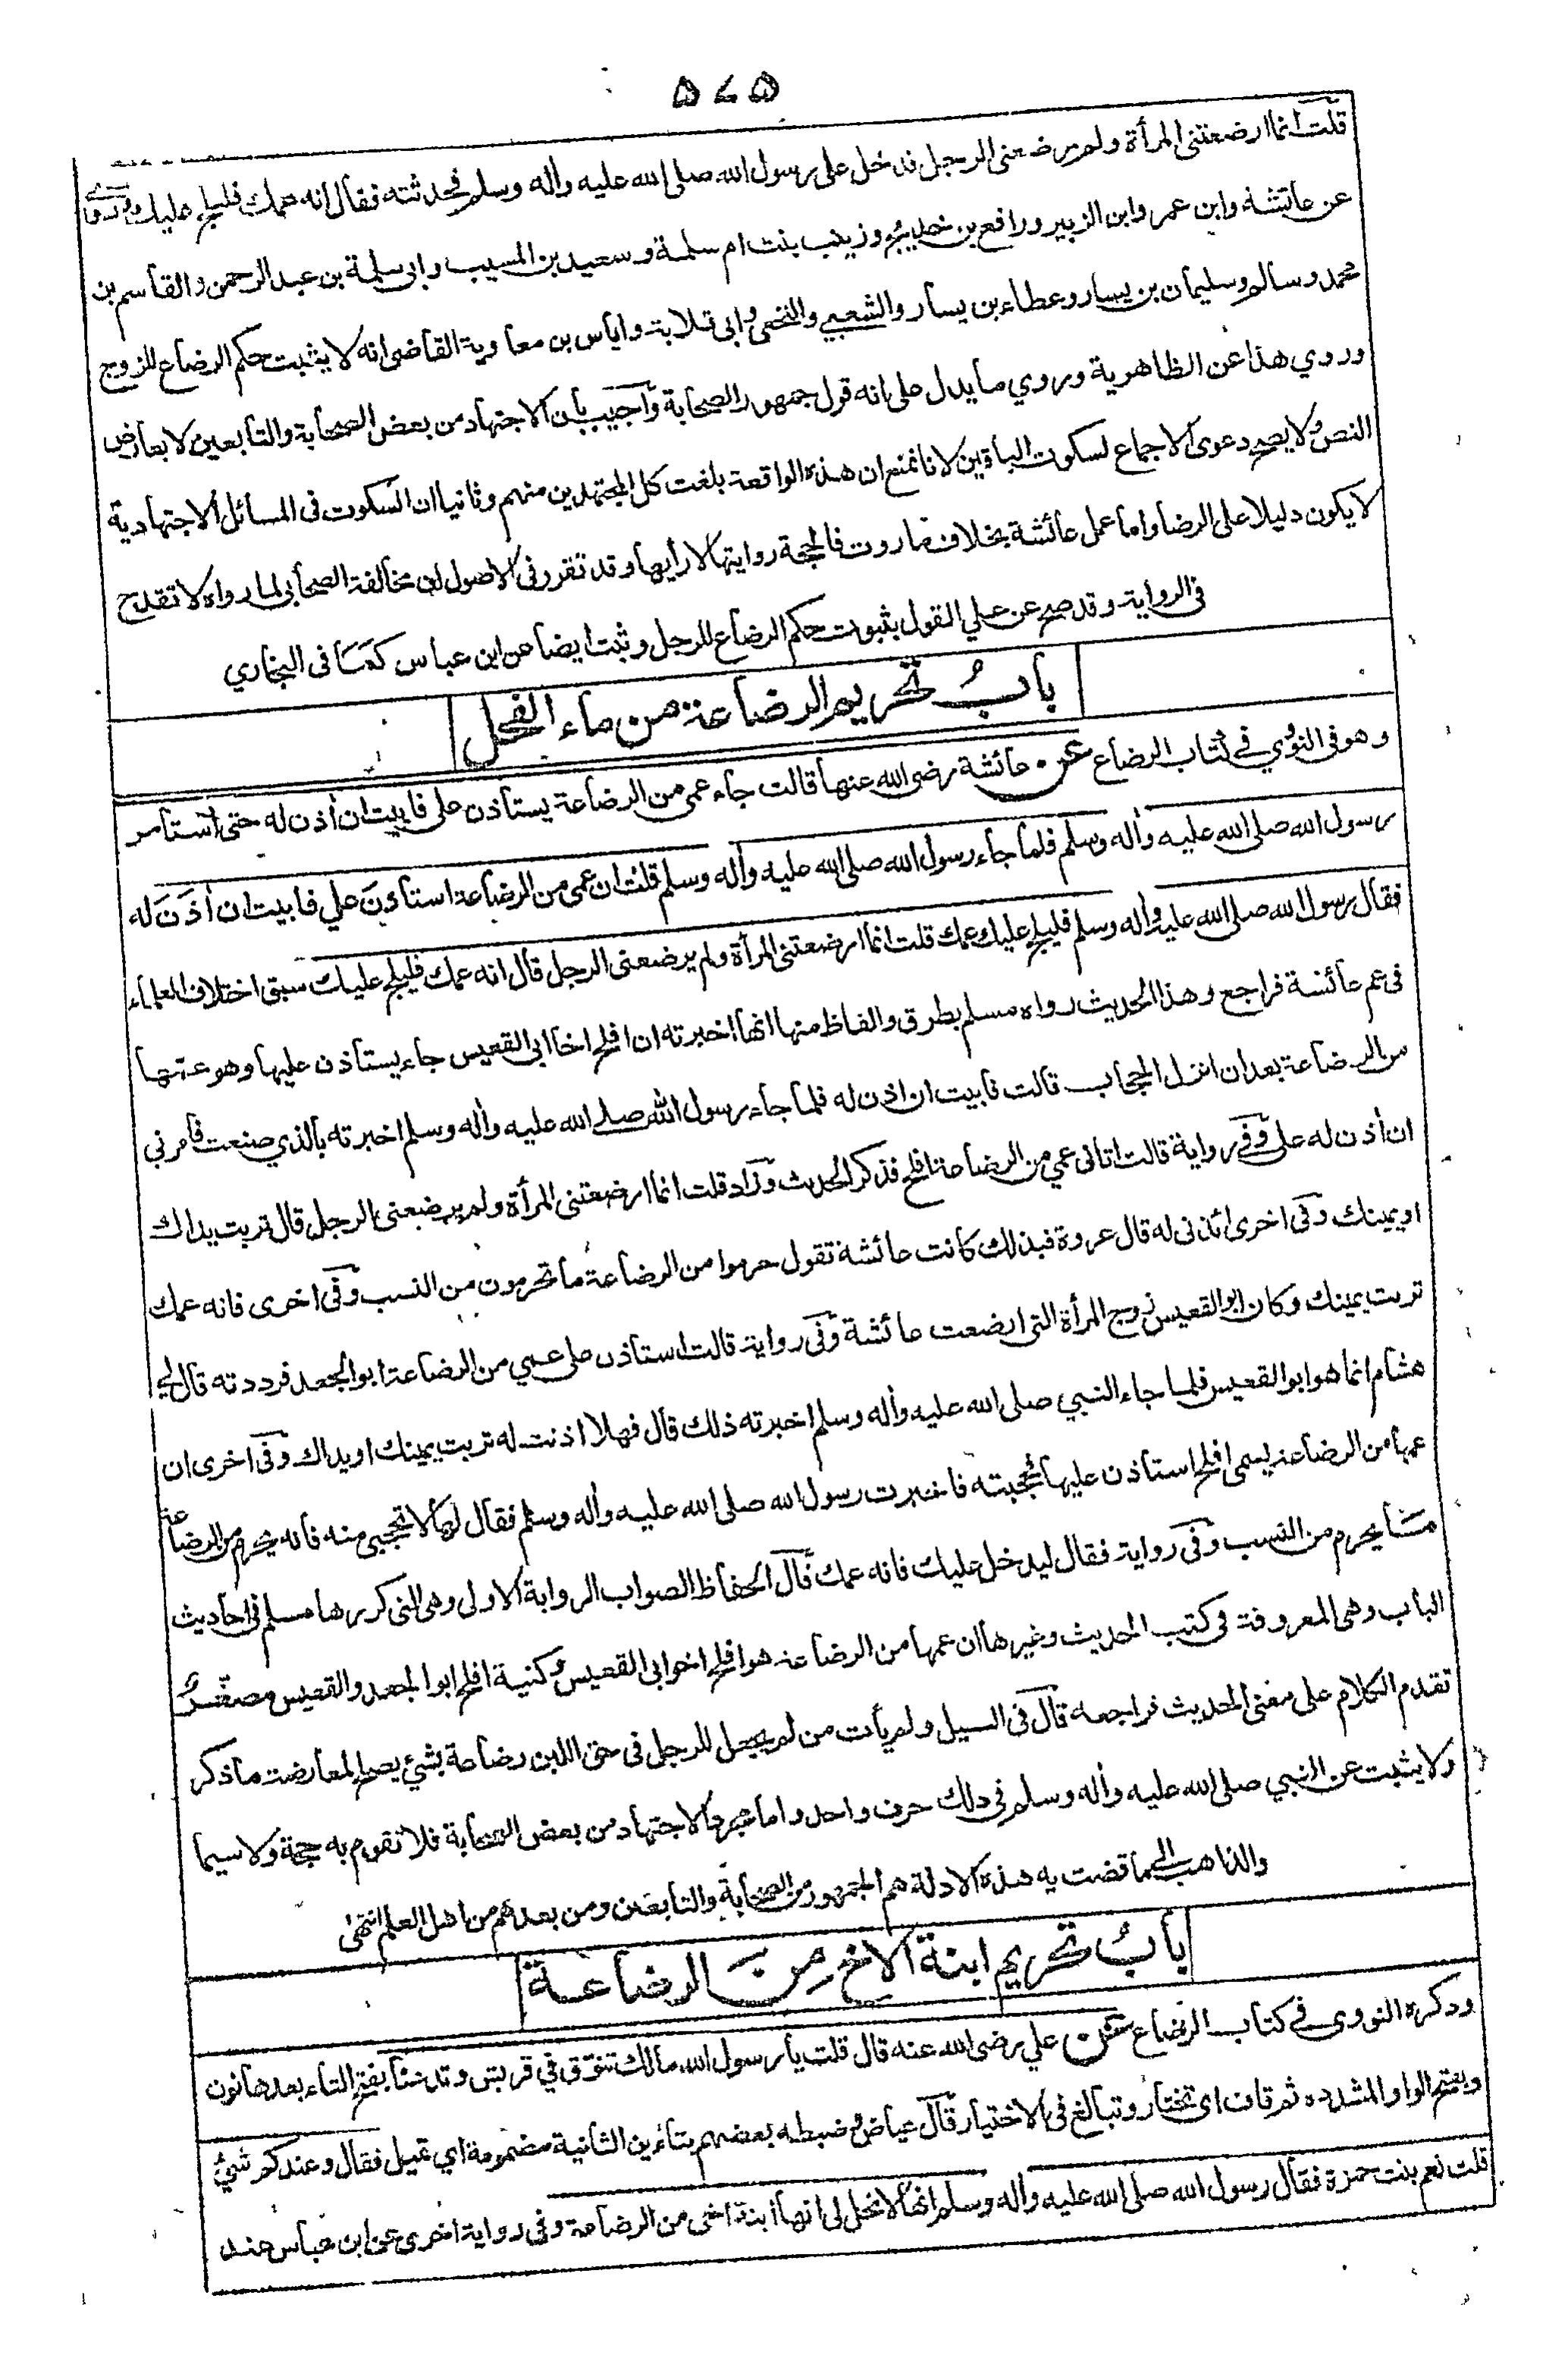 ٥٧٥
قلت انما ارضعتنى المرأة ولم يرضعنى الرجل فدخل على رسول الله صلى الله عليه وأله وسلم فحدثته فقال انه عمك فليلج عليك وروي
عن عائشة وابن عمر وابن الزبير ورافع بن خديج وزينب بنت ام سلمة وسعيد بن المسيب وابى سلمة بن عبد الرحمن والقاسم بن
محمد وسالم وسليمان بن يسار وعطاء بن يسار والشعبي والنخعى وابى قلابة واياس بن معاوية القاضى انه لا يثبت حكم الرضاع للزوج
وروي هذا عن الظاهرية وروي ما يدل على انه قول جمهور الصحابة وأجيب بأن الاجتهاد من بعض الصحابة والتابعين لا يعارض
النص ولا يصح دعوى الاجماع لسكوت الباقين لانا نمنع ان هذه الواقعة بلغت كل المجتهدين منهم وثانيا ان السكوت فى المسائل الاجتهادية
لا يكون دليلا على الرضا واما عمل عائشة بخلاف ما روت فالحجة روايتها لا رأيها وقد تقرر فى الاصول ان مخالفة الصحابى لما رواه لا تقدح
فى الرواية وقد صح عن علي القول بثبوت حكم الرضاع للرجل وثبت ايضا عن ابن عباس كما فى البخاري
باب تحريم الرضاعة من ماء الفحل
وهو فى النووي في كتاب الرضاع عن عائشة رضى الله عنها قالت جاء عمى من الرضاعة يستأذن على فابيت ان أذن له حتى أستأمر
رسول الله صلى الله عليه وأله وسلم فلما جاء رسول الله صلى الله عليه وأله وسلم قلت ان عمى من الرضاعة استأذن علي فابيت ان أذن له
فقال رسول الله صلى الله عليه وأله وسلم فليلج عليك عمك قلت انما ارضعتنى المرأة ولم يرضعنى الرجل قال انه عمك فليلج عليك سبق اختلاف العلماء
فى عم عائشة فراجع وهذا الحديث رواه مسلم بطرق والفاظ منها انها اخبرته ان افلح اخا ابى القعيس جاء يستأذن عليها وهو عمها
من الرضاعة بعد ان انزل الحجاب قالت فابيت ان اذن له فلما جاء رسول الله صلى الله عليه وأله وسلم اخبرته بالذي صنعت فأمرني
ان أذن له على وفي رواية قالت اتانى عمي من الرضاعة افلح فذكر الحديث وزاد قلت انما ارضعتنى المرأة ولم يرضعنى الرجل قال تربت يداك
او يمينك وفى اخرى ائذنى له قال عروة فبذلك كانت عائشة تقول حرموا من الرضاعة ما تحرمون من النسب وفى اخرى فانه عمك
تربت يمينك وكان ابو القعيس زوج المرأة التى ارضعت عائشة وفى رواية قالت استأذن على عمي من الرضاعة ابو الجعد فرددته قال لي
هشام انما هو ابو القعيس فلما جاء النبي صلى الله عليه وأله وسلم اخبرته ذلك قال فهلا اذنت له تربت يمينك او يداك وفى اخرى ان
عمها من الرضاعة يسمى افلح استأذن عليها فحجبته فاخبرت رسول الله صلى الله عليه وأله وسلم فقال لها لا تحجبى منه فانه يحرم من الرضاعة
ما يحرم من النسب وفى رواية فقال ليدخل عليك فانه عمك قال الحفاظ الصواب الرواية الاولى وهى التى كررها مسلم فى احاديث
الباب وهى المعروفة فى كتب الحديث وغيرها ان عمها من الرضاعة هو افلح اخو ابى القعيس وكنية افلح ابو الجعد والقعيس مصغر
تقدم الكلام على معنى الحديث فراجعه قال فى السيل ولم يأت من لم يجعل للرجل فى حق اللبن رضاعة بشئ يصلح لمعارضة ما ذكر
ولا يثبت عن النبي صلى الله عليه وأله وسلم فى ذلك حرف واحد واما مجرد الاجتهاد من بعض الصحابة فلا تقوم به حجة ولا سيما
والذاهب الى ما قضت به هذه الادلة هم الجمهور من الصحابة والتابعين ومن بعدهم من اهل العلم انتهى
باب تحريم ابنة الاخ من الرضاعة
وذكره النووى في كتاب الرضاع عن علي رضى الله عنه قال قلت يأرسول الله مالك تنوق في قريش وتدعنا بفتح التاء بعدها نون
وبفتح الواو المشدده ثم قاف اى تختار وتبالغ فى الاختيار قال عياض وضبطه بعضهم بتائين الثانية مضمومة اي تميل فقال وعندكم شئ
قلت نعم بنت حمزة فقال رسول الله صلى الله عليه وأله وسلم انها لا تحل لى انها ابنة اخى من الرضاعة وفى رواية اخرى عن ابن عباس عند